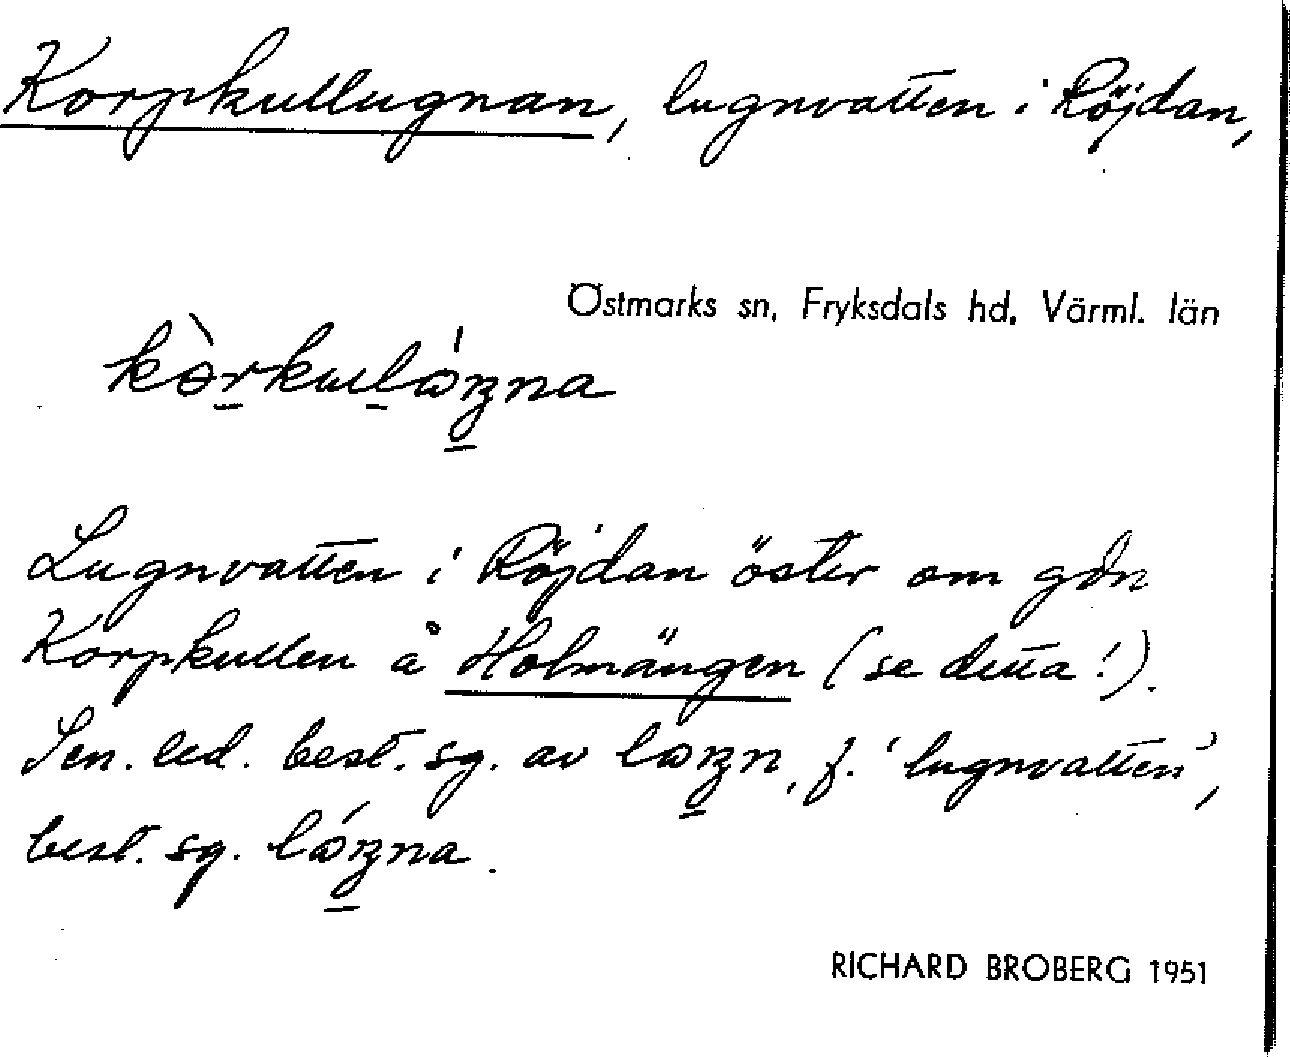 Korpkullugnan, lugnvatten i Röjdan,
Östmarks sn, Fryksdals hd, Värml. län
kòrkulə́ŋna
Lugnvatten i Röjdan öster om gdn
Korpkullen å Holmängen (se detta!).
Sen. led. best. sg. av ləŋn, f. 'lugnvatten',
best. sg. lə́ŋna.
RICHARD BROBERG 1951